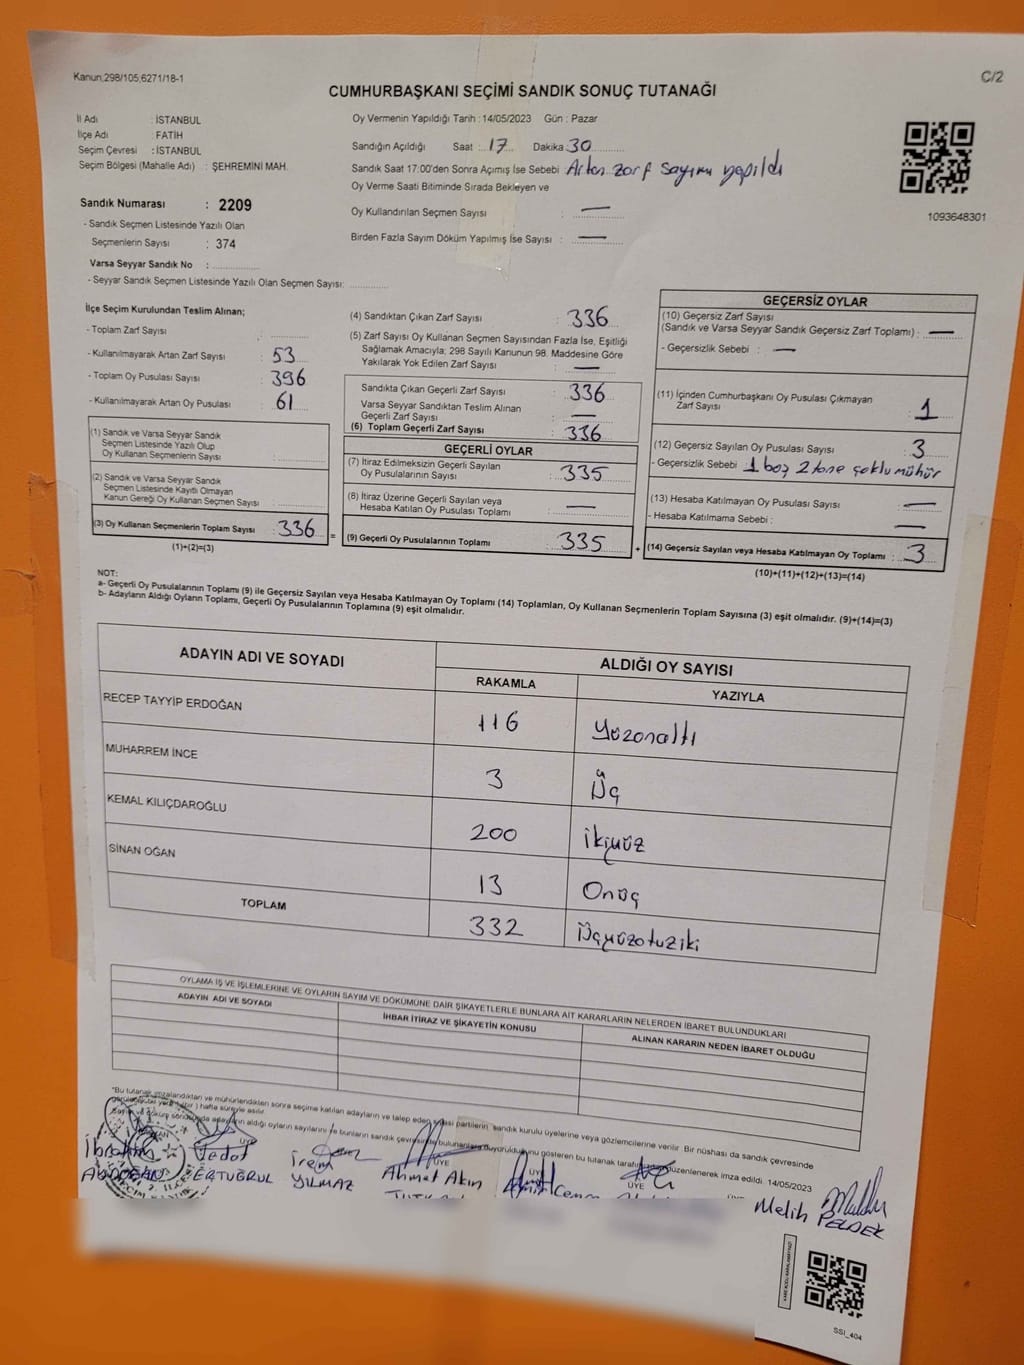 Kanun,298/105,6271/18-1
C/2
CUMHURBAŞKANI SEÇİMİ SANDIK SONUÇ TUTANAĞI
İl Adı : İSTANBUL
İlçe Adı : FATİH
Seçim Çevresi : İSTANBUL
Seçim Bölgesi (Mahalle Adı) : ŞEHREMİNİ MAH.
Sandık Numarası : 2209
- Sandık Seçmen Listesinde Yazılı Olan
Seçmenlerin Sayısı : 374
Varsa Seyyar Sandık No :
- Seyyar Sandık Seçmen Listesinde Yazılı Olan Seçmen Sayısı:
Oy Vermenin Yapıldığı Tarih : 14/05/2023 Gün : Pazar
Sandığın Açıldığı Saat : 17 Dakika : 30
Sandık Saat 17:00'den Sonra Açımış İse Sebebi : Artan zarf sayımı yapıldı
Oy Verme Saati Bitiminde Sırada Bekleyen ve
Oy Kullandırılan Seçmen Sayısı : —
Birden Fazla Sayım Döküm Yapılmış İse Sayısı : —
1093648301
İlçe Seçim Kurulundan Teslim Alınan;
- Toplam Zarf Sayısı :
- Kullanılmayarak Artan Zarf Sayısı : 53
- Toplam Oy Pusulası Sayısı : 396
- Kullanılmayarak Artan Oy Pusulası : 61
(1) Sandık ve Varsa Seyyar Sandık
Seçmen Listesinde Yazılı Olup
Oy Kullanan Seçmenlerin Sayısı :
(2) Sandık ve Varsa Seyyar Sandık
Seçmen Listesinde Kayıtlı Olmayan
Kanun Gereği Oy Kullanan Seçmen Sayısı :
(3) Oy Kullanan Seçmenlerin Toplam Sayısı : 336 =
(1)+(2)=(3)
(4) Sandıktan Çıkan Zarf Sayısı : 336
(5) Zarf Sayısı Oy Kullanan Seçmen Sayısından Fazla İse, Eşitliği
Sağlamak Amacıyla; 298 Sayılı Kanunun 98. Maddesine Göre
Yakılarak Yok Edilen Zarf Sayısı : —
Sandıkta Çıkan Geçerli Zarf Sayısı : 336
Varsa Seyyar Sandıktan Teslim Alınan
Geçerli Zarf Sayısı : —
(6) Toplam Geçerli Zarf Sayısı : 336
GEÇERLİ OYLAR
(7) İtiraz Edilmeksizin Geçerli Sayılan
Oy Pusulalarının Sayısı : 335
(8) İtiraz Üzerine Geçerli Sayılan veya
Hesaba Katılan Oy Pusulası Toplamı : —
(9) Geçerli Oy Pusulalarının Toplamı : 335 +
GEÇERSİZ OYLAR
(10) Geçersiz Zarf Sayısı
(Sandık ve Varsa Seyyar Sandık Geçersiz Zarf Toplamı) : —
- Geçersizlik Sebebi : —
(11) İçinden Cumhurbaşkanı Oy Pusulası Çıkmayan
Zarf Sayısı : 1
(12) Geçersiz Sayılan Oy Pusulası Sayısı : 3
- Geçersizlik Sebebi : 1 boş 2 tane çoklu mühür
(13) Hesaba Katılmayan Oy Pusulası Sayısı : —
- Hesaba Katılmama Sebebi : —
(14) Geçersiz Sayılan veya Hesaba Katılmayan Oy Toplamı : 3
(10)+(11)+(12)+(13)=(14)
NOT:
a- Geçerli Oy Pusulalarının Toplamı (9) ile Geçersiz Sayılan veya Hesaba Katılmayan Oy Toplamı (14) Toplamları, Oy Kullanan Seçmenlerin Toplam Sayısına (3) eşit olmalıdır. (9)+(14)=(3)
b- Adayların Aldığı Oyların Toplamı, Geçerli Oy Pusulalarının Toplamına (9) eşit olmalıdır.
ADAYIN ADI VE SOYADI ALDIĞI OY SAYISI
RAKAMLA YAZIYLA
RECEP TAYYİP ERDOĞAN 116 Yüzonaltı
MUHARREM İNCE 3 Üç
KEMAL KILIÇDAROĞLU 200 İkiyüz
SİNAN OĞAN 13 Onüç
TOPLAM 332 Üçyüzotuziki
OYLAMA İŞ VE İŞLEMLERİNE VE OYLARIN SAYIM VE DÖKÜMÜNE DAİR ŞİKAYETLERLE BUNLARA AİT KARARLARIN NELERDEN İBARET BULUNDUKLARI
ADAYIN ADI VE SOYADI İHBAR İTİRAZ VE ŞİKAYETİN KONUSU ALINAN KARARIN NEDEN İBARET OLDUĞU
*Bu tutanak imzalandıktan ve mühürlendikten sonra seçime katılan adayların ve talep eden siyasi partilerin sandık kurulu üyelerine veya gözlemcilerine verilir. Bir nüshası da sandık çevresinde
hafta süreyle asılır.
adayların aldığı oyların sayılarını ve bunların sandık çevresinde bulunanlara duyurulduğunu gösteren bu tutanak düzenlenerek imza edildi. 14/05/2023
ÜYE ÜYE ÜYE ÜYE
İbrahim Vedat İrem Ahmet Akın Melih
ERTUĞRUL YILMAZ PELDEK
SSI_404